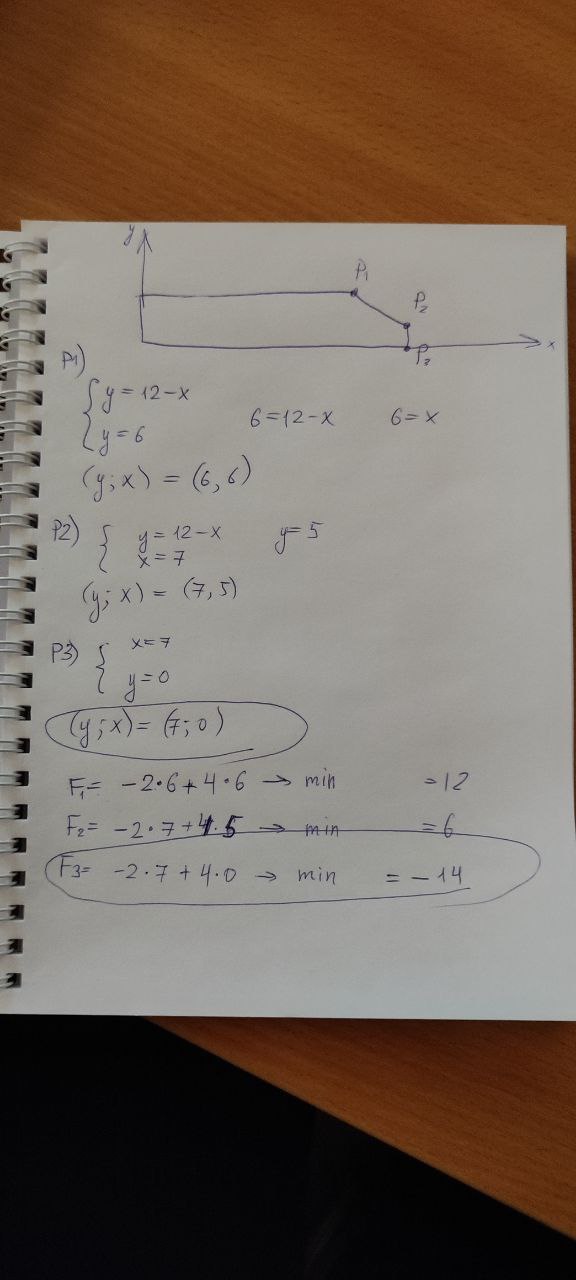 y
P1
P2
P3
x
P1) { y = 12-x
y = 6
6 = 12-x 6 = x
(y; x) = (6, 6)
P2) { y = 12-x y = 5
x = 7
(y; x) = (7, 5)
P3) { x = 7
y = 0
(y; x) = (7; 0)
F1 = -2·6 + 4·6 → min = 12
F2 = -2·7 + 4·5 → min = 6
F3 = -2·7 + 4·0 → min = -14